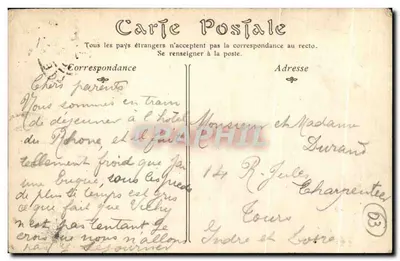 Carte Postale
Tous les pays étrangers n'acceptent pas la correspondance au recto.
Se renseigner à la poste.
Correspondance
Adresse
Chers parents
Nous sommes en train
de dejeuner à l'hotel
du Rhone et il fait
tellement froid que j'ai
une sous les pieds
de plus le temps est gris
ce que fait que Vichy
n'est pas tentant. Je
crois que nous n'allons
pas y sejourner
Monsieur et Madame
Durand
14 R. Jules
Charpentier
Tours
Indre et Loire
63